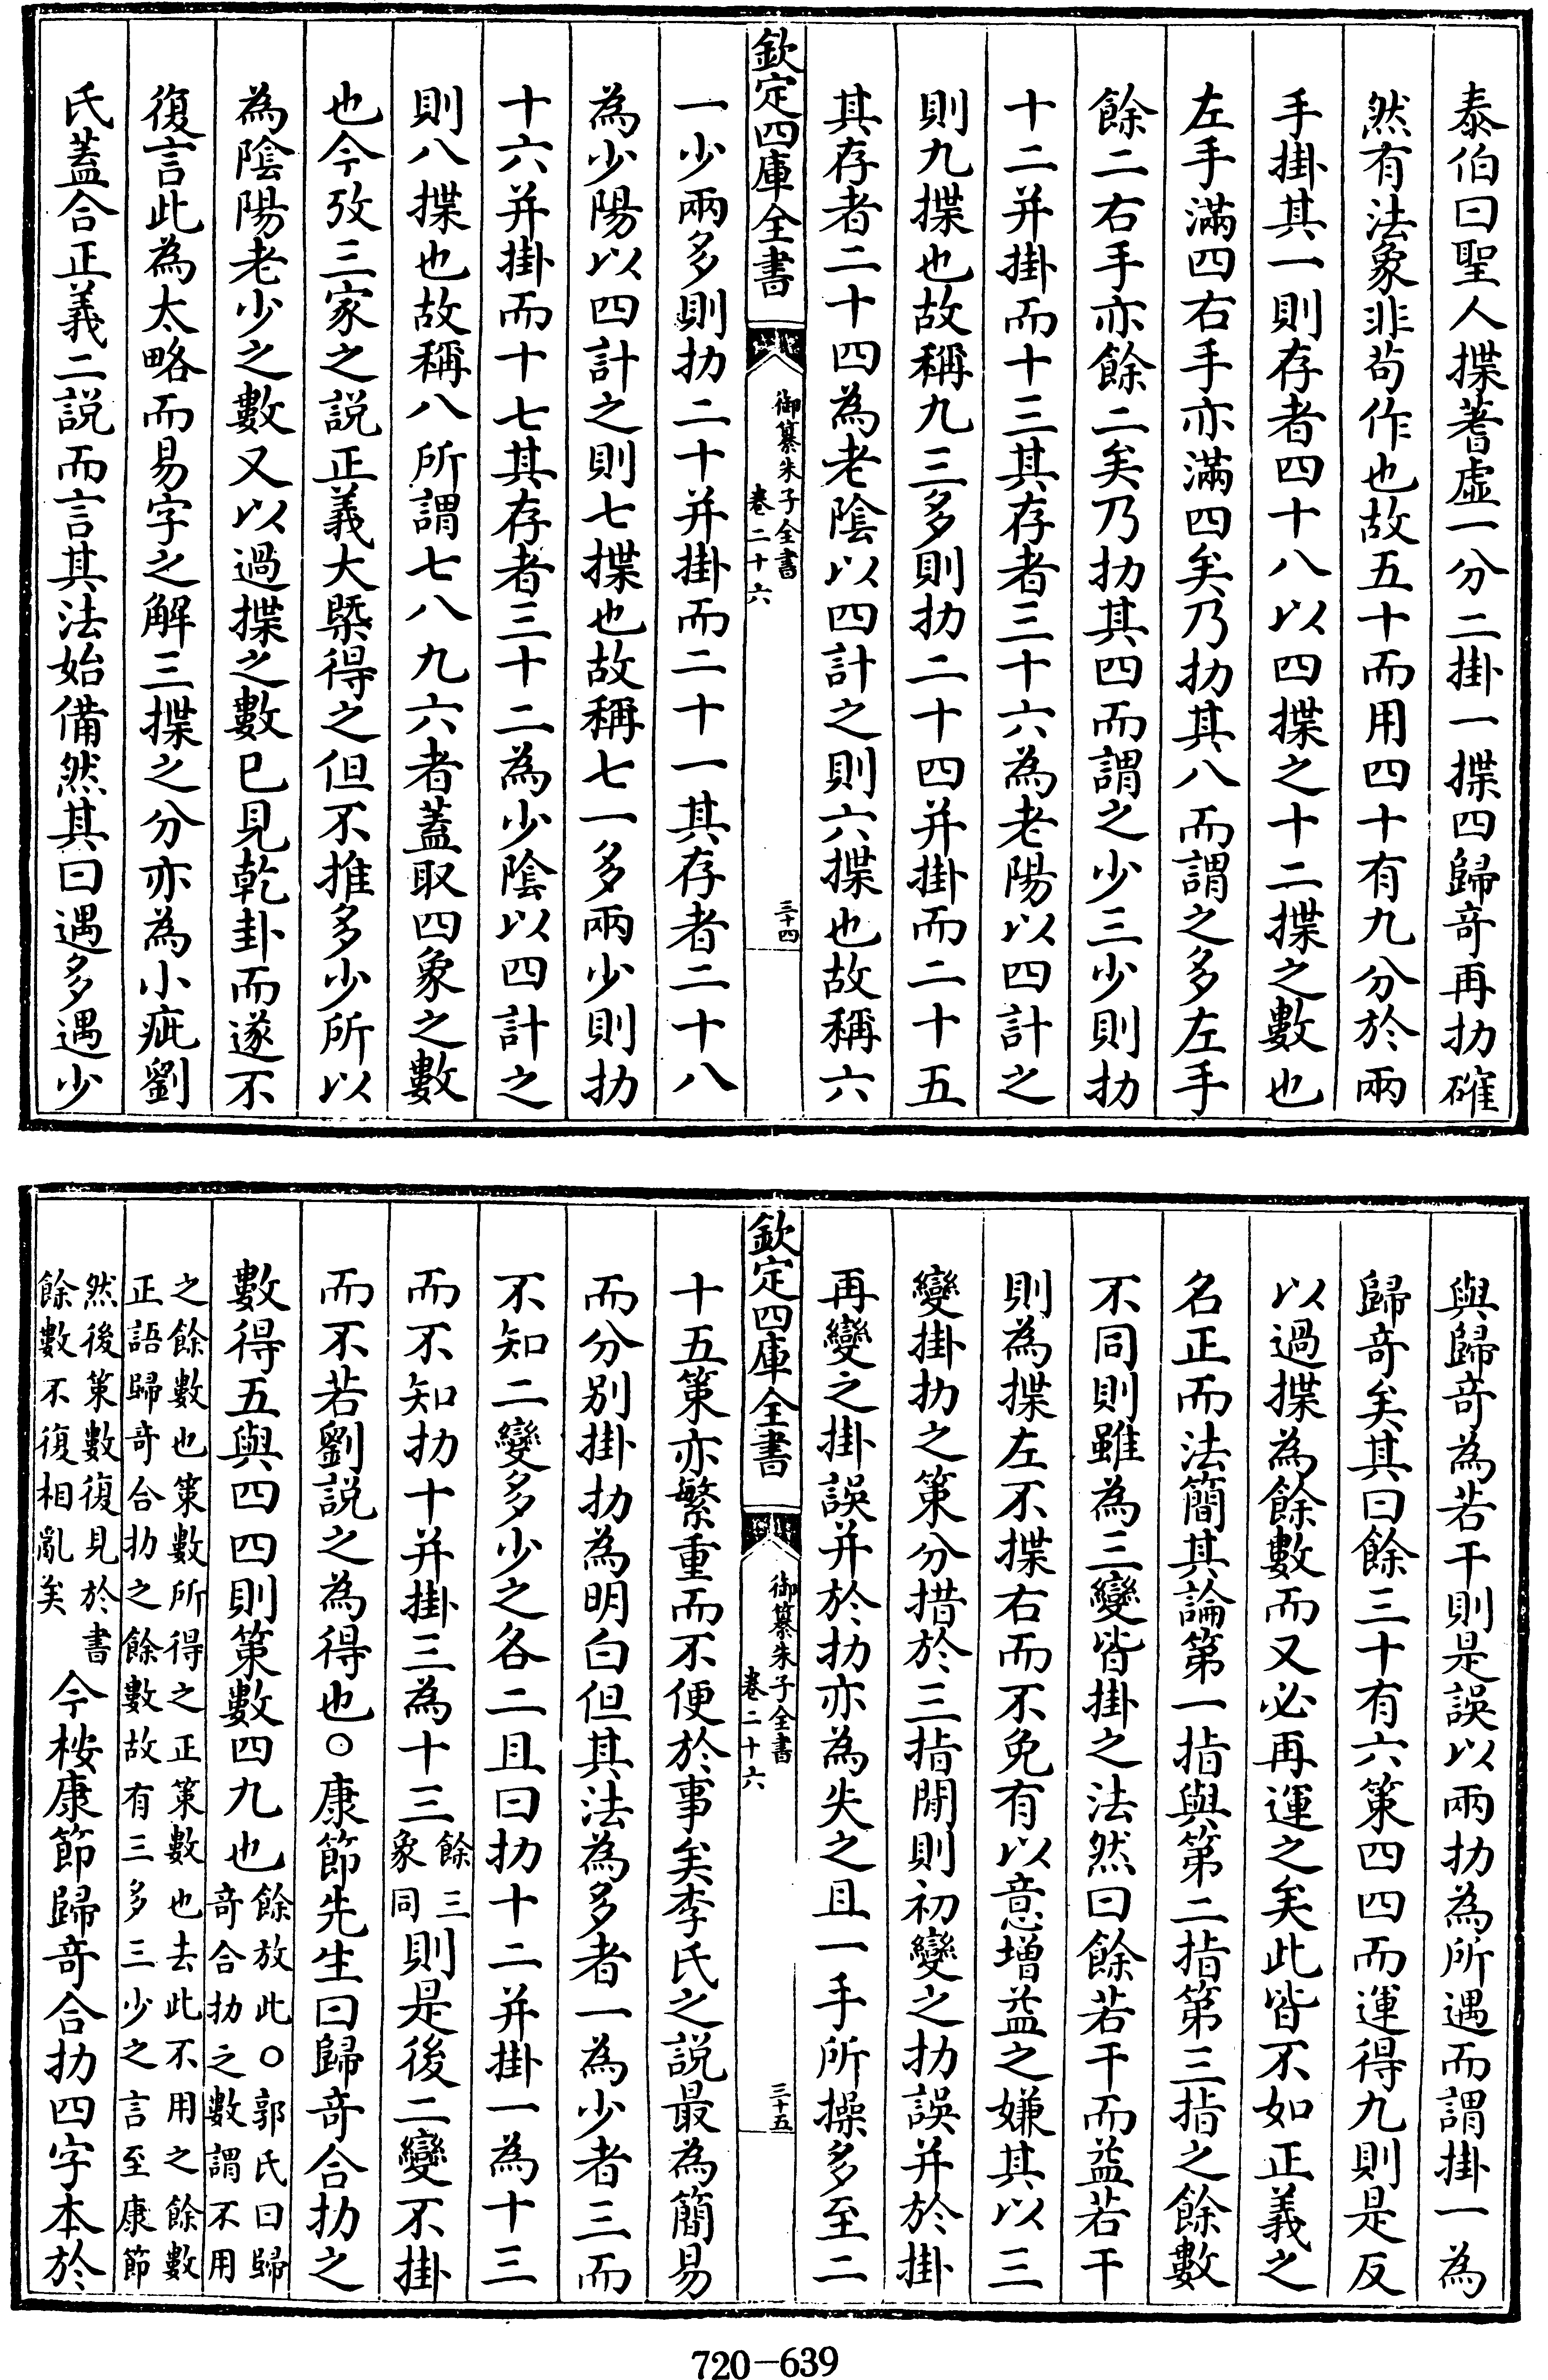 泰伯曰聖人揲蓍虛一分二掛一揲四歸奇再扐確
然有法象非苟作也故五十而用四十有九分於兩
手掛其一則存者四十八以四揲之十二揲之數也
左手滿四右手亦滿四矣乃扐其八而謂之多左手
餘二右手亦餘二矣乃扐其四而謂之少三少則扐
十二并掛而十三其存者三十六為老陽以四計之
則九揲也故稱九三多則扐二十四并掛而二十五
其存者二十四為老陰以四計之則六揲也故稱六
欽定四庫全書
御纂朱子全書
卷二十六
三十四
一少兩多則扐二十并掛而二十一其存者二十八
為少陽以四計之則七揲也故稱七一多兩少則扐
十六并掛而十七其存者三十二為少陰以四計之
則八揲也故稱八所謂七八九六者蓋取四象之數
也今攷三家之說正義大槩得之但不推多少所以
為陰陽老少之數又以過揲之數已見乾卦而遂不
復言此為太略而易字之解三揲之分亦為小疵劉
氏蓋合正義二說而言其法始備然其曰遇多遇少
與歸奇為若干則是誤以兩扐為所遇而謂掛一為
歸奇矣其曰餘三十有六策四四而運得九則是反
以過揲為餘數而又必再運之矣此皆不如正義之
名正而法簡其論第一指與第二指第三指之餘數
不同則雖為三變皆掛之法然曰餘若干而益若干
則為揲左不揲右而不免有以意增益之嫌其以三
變掛扐之策分措於三指閒則初變之扐誤并於掛
再變之掛誤并於扐亦為失之且一手所操多至二
欽定四庫全書
御纂朱子全書
卷二十六
三十五
十五策亦繁重而不便於事矣李氏之說最為簡易
而分别掛扐為明白但其法為多者一為少者三而
不知二變多少之各二且曰扐十二并掛一為十三
而不知扐十并掛三為十三餘三象同則是後二變不掛
而不若劉說之為得也○康節先生曰歸奇合扐之
數得五與四四則策數四九也餘放此○郭氏曰歸奇合扐之數謂不用
之餘數也策數所得之正策數也去此不用之餘數正語歸奇合扐之餘數故有三多三少之言至康節
然後策數復見於書餘數不復相亂矣今桉康節歸奇合扐四字本於
720-639